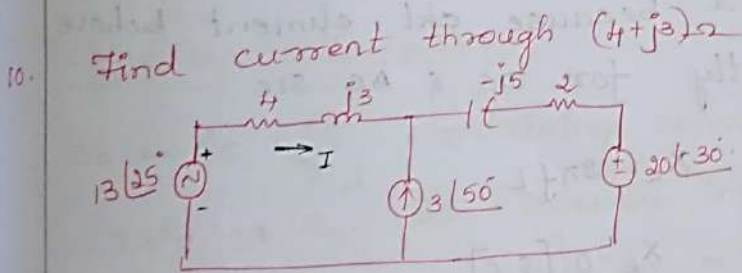 10. Find current through (4+j3)Ω
4 j3 -j5 2
→ I
+
13∠25° ~ ↑ 3∠50° ± 20∠-30°
-